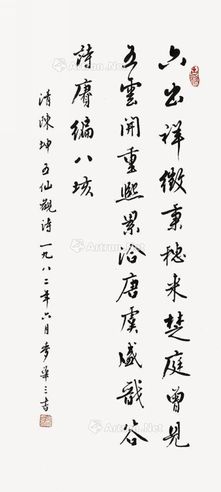 六出祥徵秉穗来楚庭曾見
五雲開重熙累洽唐虞盛戩谷
詩賡编八垓
清陳坤五仙觀詩一九八二年六月麥華三書